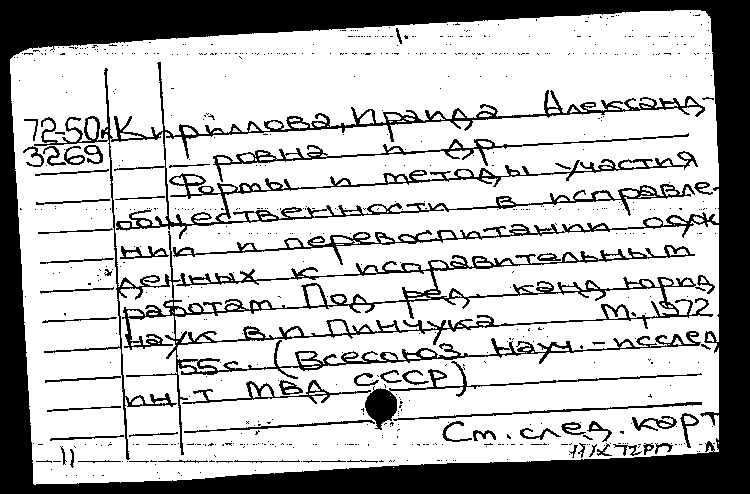 1.
72-50л Кириллова, Ираида Александ-
3269 ровна и др.
Формы и методы участия
общественности в исправле-
нии и перевоспитании осуж
денных к исправительным
работам. Под ред. канд. юрид
наук В.И. Пинчука М., 1972.
55с. (Всесоюз. науч.-исслед
ин-т МВД СССР).
См. след. карт
11